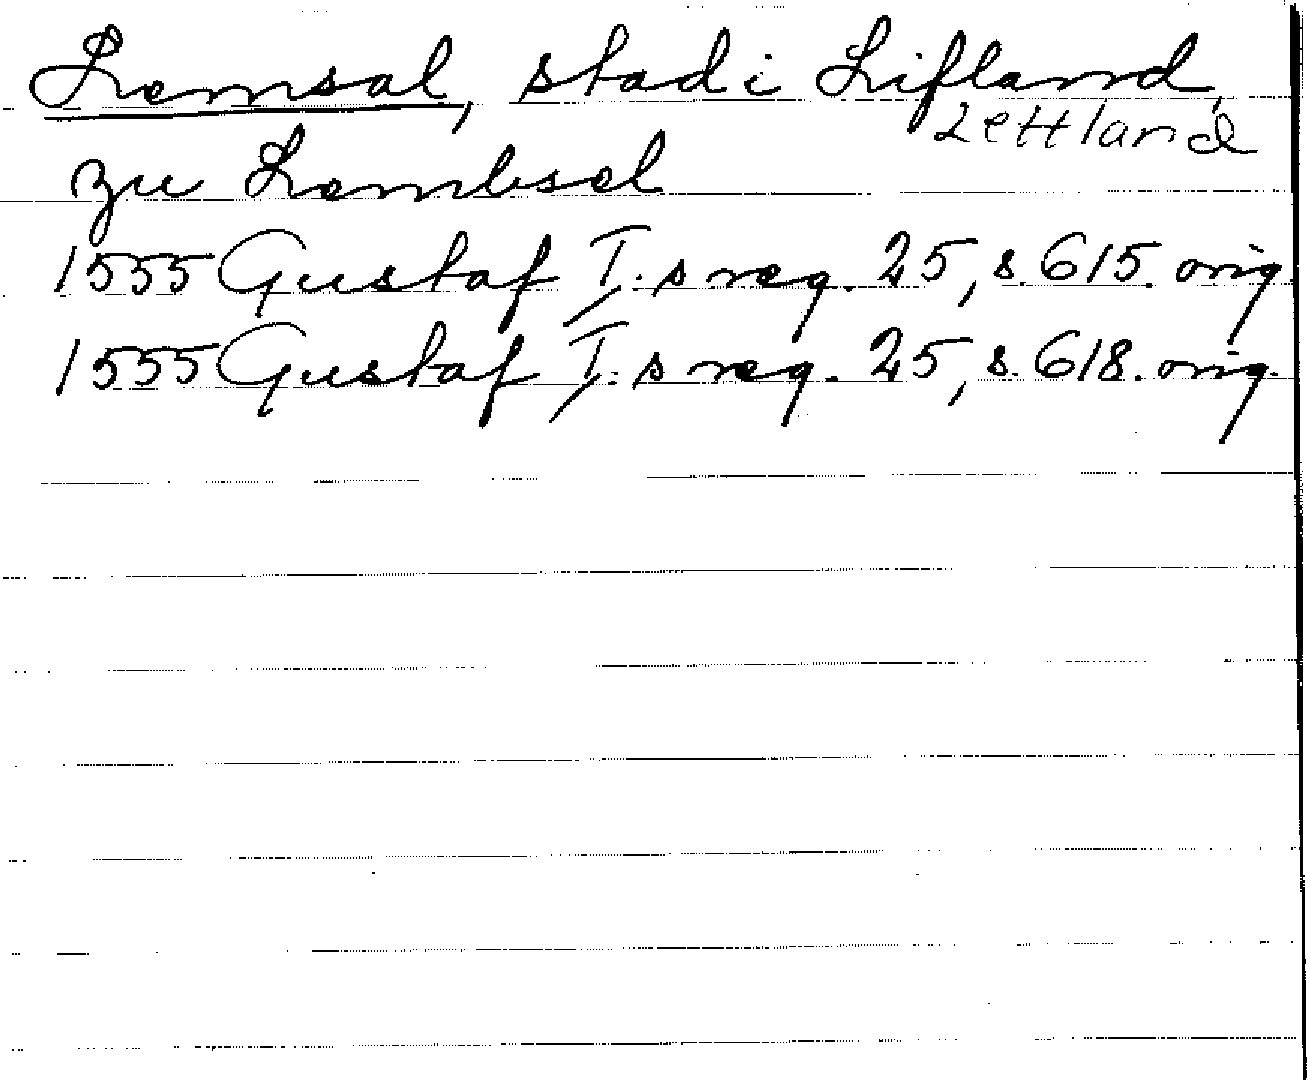 Lemsal, stad i Lifland,
Lettland
zu Lembsel
1555 Gustaf I:s reg. 25, s. 615. orig.
1555 Gustaf I:s reg. 25, s. 618. orig.